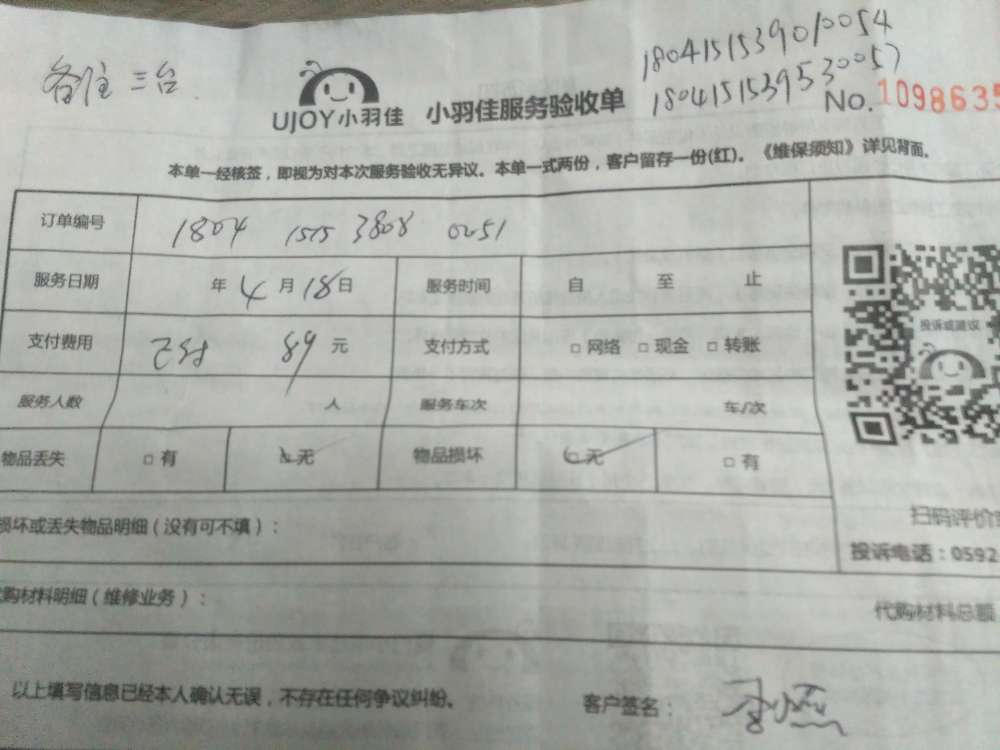 备注 三台
180415153901 0054
180415153953 0057
UJOY小羽佳 小羽佳服务验收单
NO. 1098635
本单一经核签，即视为对本次服务验收无异议。本单一式两份，客户留存一份(红)。《维保须知》详见背面。
订单编号 1804 1515 3808 0051
服务日期 年 4 月 18 日 服务时间 自 至 止
支付费用 89 元 支付方式 □ 网络 □ 现金 □ 转账
投诉或建议
服务人数 人 服务车次 车/次
物品丢失 □ 有 □ 无 物品损坏 □ 无 □ 有
损坏或丢失物品明细（没有可不填）：
扫码评价
投诉电话：0592
代购材料明细（维修业务）：
代购材料总额
以上填写信息已经本人确认无误，不存在任何争议纠纷。
客户签名：